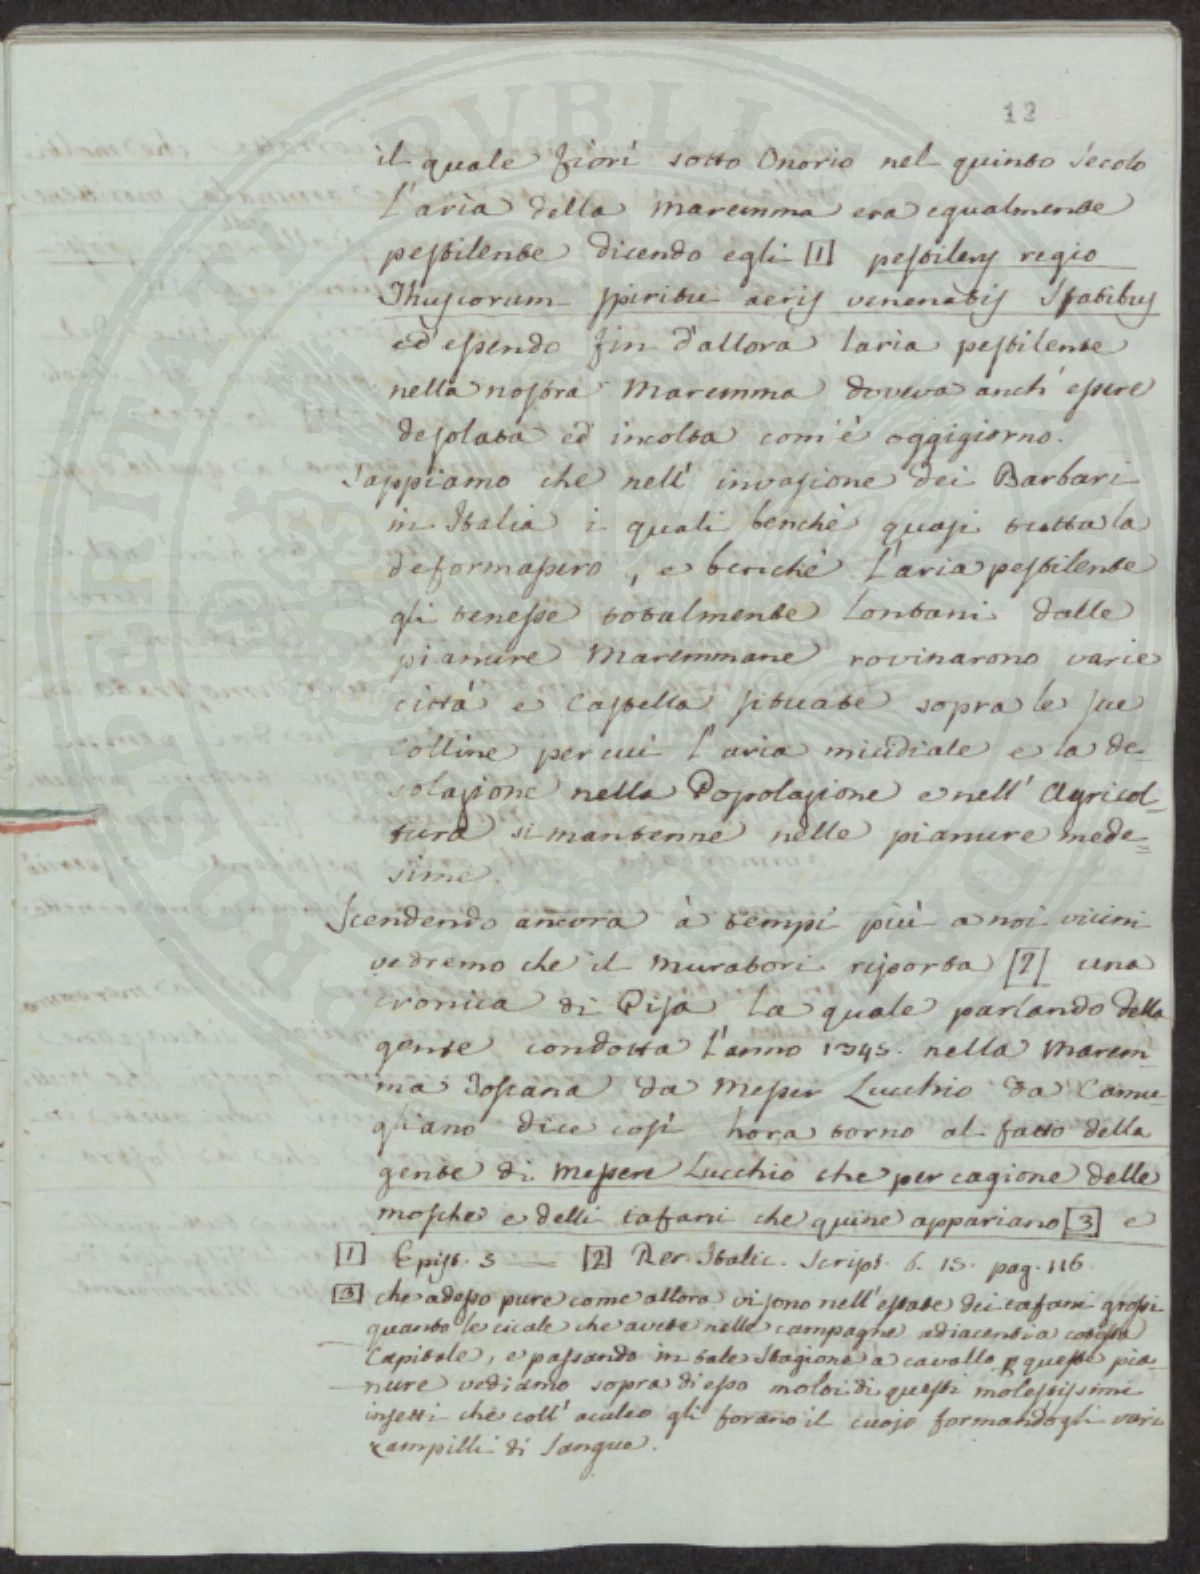 12
il quale fiorì sotto Onorio nel quinto secolo
l'aria della Maremma era egualmente
pestilente dicendo egli [1] pestilens regio
Thuscorum spiritu aeris venenatis
ed' essendo fin d'allora l'aria pestilente
nella nostra Maremma doveva anch' essere
desolata ed' incolta com'è oggigiorno.
Sappiamo che nell' invasione dei Barbari
in Italia i quali benchè quasi tutta la
deformassero, e benchè l'aria pestilente
gli tenesse totalmente lontani dalle
pianure Maremmane rovinarono varie
città e Castella situate sopra le sue
Colline per cui l'aria micidiale e la de-
solazione nella Popolazione e nell' Agricol-
tura si mantenne nelle pianure mede-
sime.
Scendendo ancora à tempi più a noi vicini
vedremo che il Muratori riporta [2] una
cronica di Pisa la quale parlando della
gente condotta l'anno 1345. nella Marem-
ma Toscana da Messer Lucchio da Camu-
gliano dice così hora torno al fatto della
gente di Messere Lucchio che per cagione delle
mosche e delli tafani che quine appariano [3] e
[1] Epist. 5 — [2] Rer. Italic. Script. t. 15. pag. 116
[3] che adesso pure come allora vi sono nell'estate dei tafani grossi
quanto le cicale che avete nelle campagne adiacenti a cotesta
Capitale, e passando in tale Stagione a cavallo p queste pia-
nure vediamo sopra di esso molti di questi molestissimi
insetti che coll' aculeo gli forano il cuojo formandogli varii
zampilli di sangue.
ROSPERITATI PUBLICAE